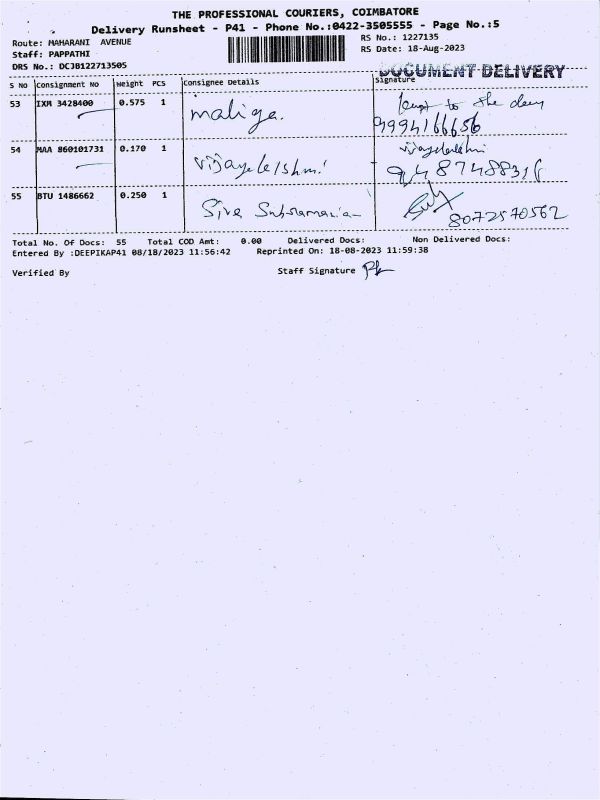 THE PROFESSIONAL COURIERS, COIMBATORE
Delivery Runsheet - P41 - Phone No.:0422-3505555 - Page No.:5
Route: MAHARANI AVENUE
RS No.: 1227135
Staff: PAPPATHI
RS Date: 18-Aug-2023
DRS No.: DCJB122713505
DOCUMENT DELIVERY
S No Consignment No Weight PCS Consignee Details Signature
53 IXM 3428400 0.575 1 maliga. to the
9994166656
54 MAA 860101731 0.170 1
55 BTU 1486662 0.250 1 Siva Subramanian
8072570562
Total No. Of Docs: 55 Total COD Amt: 0.00 Delivered Docs: Non Delivered Docs:
Entered By :DEEPIKAP41 08/18/2023 11:56:42 Reprinted On: 18-08-2023 11:59:38
Verified By Staff Signature